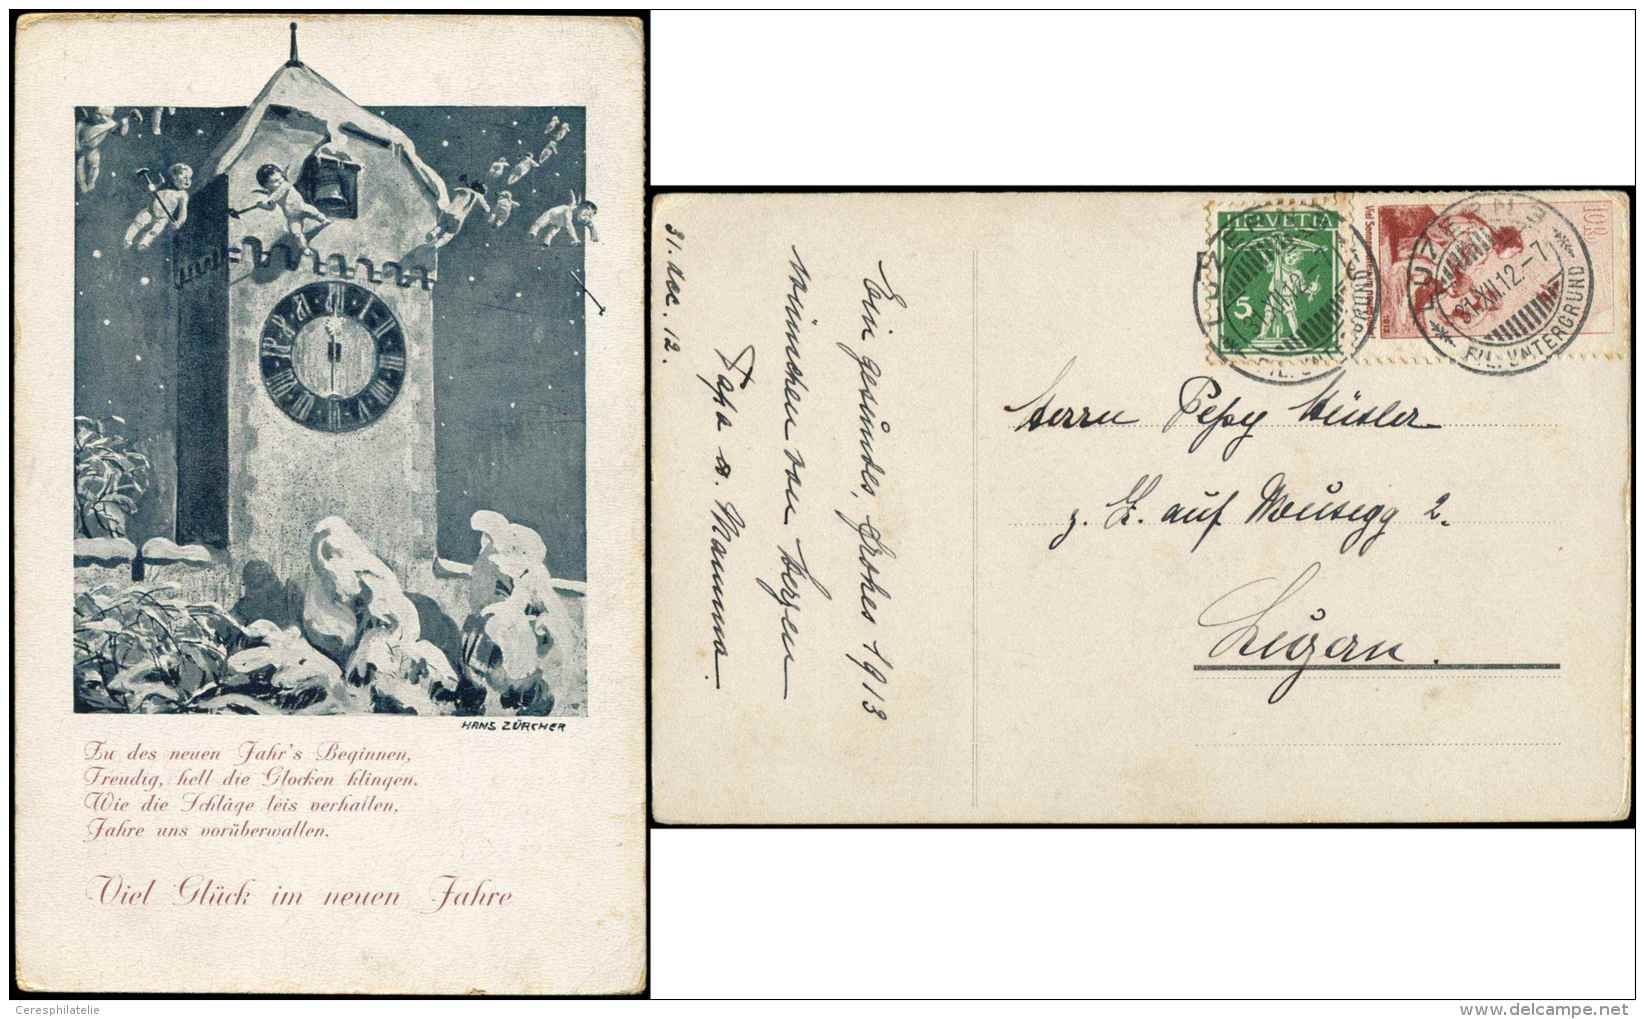 HANS ZÜRCHER
Zu des neuen Jahr's Beginnen,
Freudig, hell die Glocken klingen.
Wie die Schläge leis verhallen,
Jahre uns vorüberwallen.
Viel Glück im neuen Jahre
31. Dez. 12.
Ein gesundes, frohes 1913
wünschen von Herzen
Papa u. Mamma.
HELVETIA
5
10
LUZERN
31.XII.12.-7
FIL. UNTERGRUND
Herrn Pepy Müsler
z. Z. auf Musegg 2.
Luzern.
Ceresphilatelie
delcampe.net